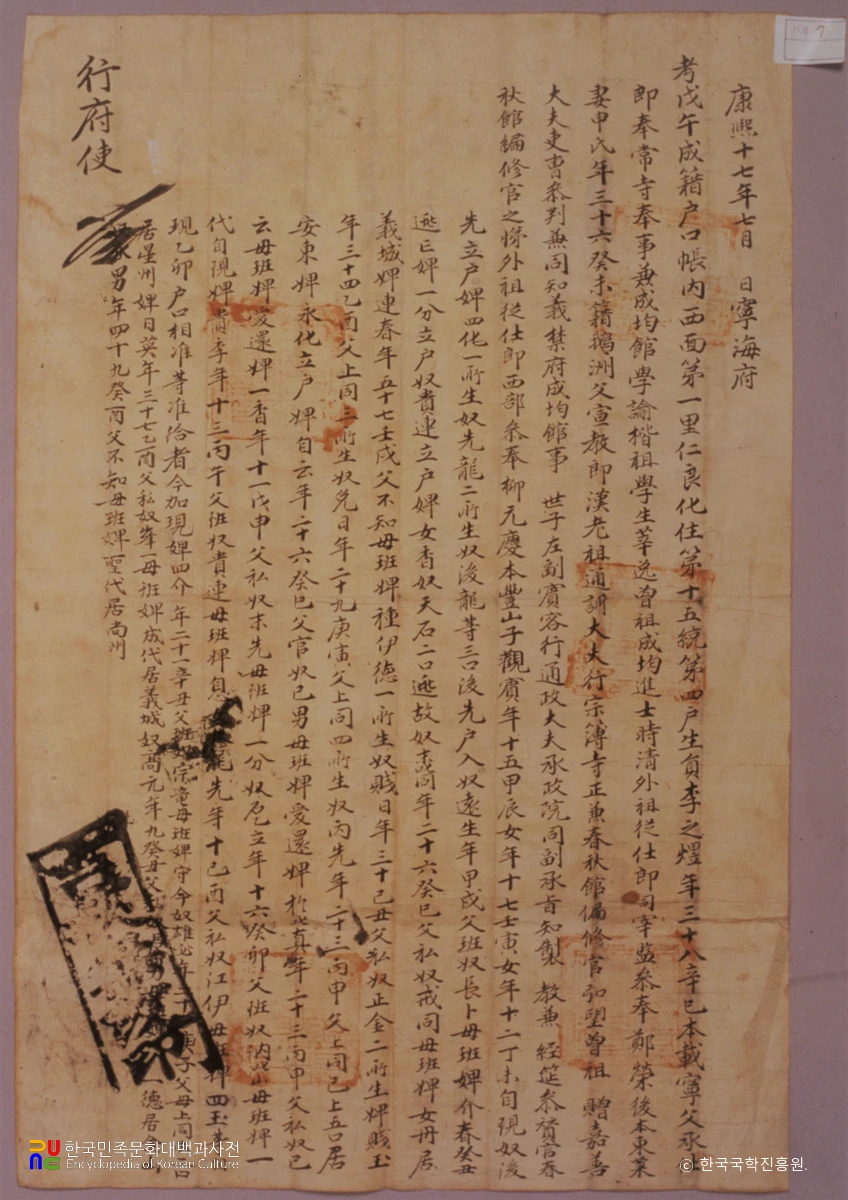 康熙十七年七月 日寧海府
考戊午成籍戶口帳內西面第一里仁良化住第十五統第四戶生負李之煜年三十八辛巳本載寧父承仕
郎奉常寺奉事兼成均館學諭楷祖學生莘逸曾祖成均進士時淸外祖從仕郎司宰監參奉鄭榮後本東萊
妻申氏年三十六癸未籍鵝洲父宣敎郎漢老祖通訓大夫行宗簿寺正兼春秋館編修官弘望曾祖 贈嘉善
大夫吏曹參判兼同知義禁府成均館事 世子左副賓客行通政大夫承政院同副承旨知製 敎兼 經筵參贊官春
秋館編修官之悌外祖從仕郎西部參奉柳元慶本豐山子觀賓年十五甲辰女年十七壬寅女年十二丁未自現奴後
先立戶婢四化一所生奴先龍二所生奴後龍等三口後先戶入奴遠生年甲戌父班奴長卜母班婢介春癸丑
逃亡婢一分立戶奴貴連立戶婢女香奴天石二口逃故奴 同年二十六癸巳父私奴戒同母班婢女丹居
義城婢連春年五十七壬戌父不知母班婢種伊德一所生奴賤日年三十己丑父私奴正金二所生婢賤玉
年三十四乙酉父上同三所生奴免日年二十九庚寅父上同四所生奴丙先年二十三丙申父上同已上五口居
安東婢永化立戶婢自云年二十六癸巳父官奴已男母班婢愛還婢 眞年二十三丙申父私奴已
云母班婢愛還婢一香年十一戊申父私奴末先母班婢一分奴 立年十六癸卯父班奴 山母班婢一
代自現婢貴季年十三丙午父班奴貴連母班婢 先年十己酉父私奴江伊母班婢四玉 
現乙卯戶口相准等准給者今加現婢四介年二十一辛丑父班奴 母班婢守今奴雄 年 庚子父母上同二口
居星州婢日英年三十七 酉父私奴峯一母班婢成代居義城奴高元年九癸 父 一德居
 男年四十九癸酉父不知母班婢聖代居尙州
行府使
한국민족문화대백과사전
Encyclopedia of Korean Culture
© 한국국학진흥원.
7